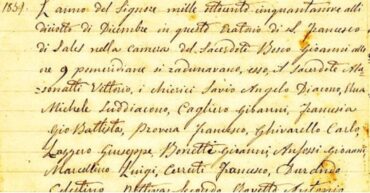 1859.
L'anno del Signore mille ottocento cinquantanove alli
diciotto di Dicembre in questo Oratorio di S. Francesco
di Sales nella camera del Sacerdote Bosco Giovanni alle
ore 9 pomeridiane si radunavano, esso, il Sacerdote Ala=
sonatti Vittorio, i chierici Savio Angelo Diacono, Rua
Michele Suddiacono, Cagliero Giovanni, Francesia
Gio Battista, Provera Francesco, Ghivarello Carlo,
Lazzero Giuseppe, Bonetti Giovanni, Anfossi Giovanni,
Marcellino Luigi, Cerruti Francesco, Durando
Celestino, Pettiva Secondo, Rovetto Antonio